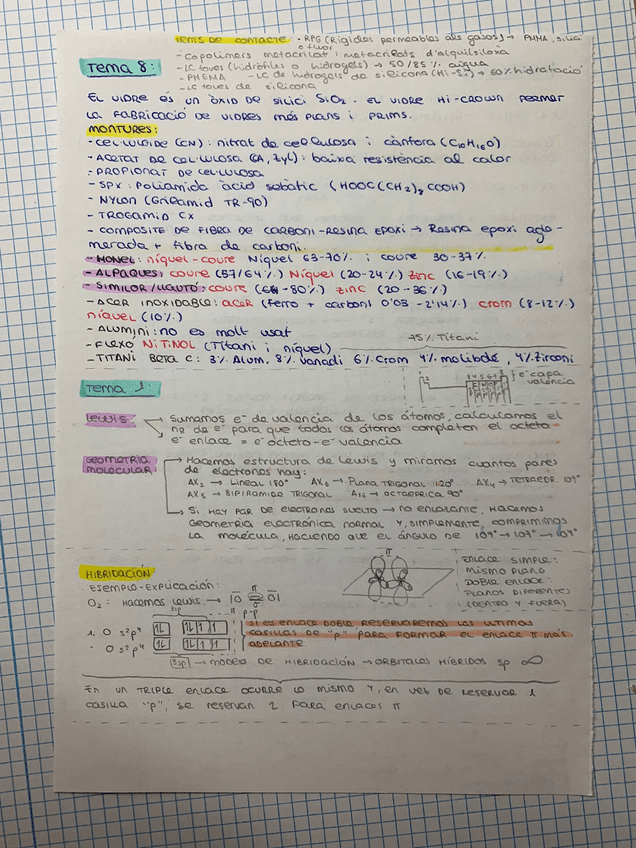 LENTS DE CONTACTE: - RPG (Rígides permeables als gasos) → PMMA, silici
o fluor
- Copolímers metacrilat i metacrilats d'alquilsiloxà
- LC toves (hidròfiles o hidrogels) → 50/85% aigua
- PHEMA - LC de hidrogels de silicona (Hi-Si) → 60% hidratació
- LC toves de silicona
Tema 8:
EL VIDRE ÉS UN ÒXID DE SILICI SiO2. EL VIDRE HI-CROWN PERMET
LA FABRICACIÓ DE VIDRES MÉS PLANS I PRIMS.
MONTURES:
- CEL·LULOIDE (CN): nitrat de cel·lulosa i càmfora (C10H16O)
- ACETAT DE CEL·LULOSA (CA, Zyl): baixa resistència al calor
- PROPIONAT DE CEL·LULOSA
- SPX: Poliamida àcid sebàtic (HOOC(CH2)8COOH)
- NYLON (Grilamid TR-90)
- TROGAMID CX
- COMPOSITE DE FIBRA DE CARBONI-RESINA EPOXI → Resina epoxi aglo-
merada + fibra de carboni.
- MONEL: níquel-coure Níquel 63-70% i coure 30-37%
- ALPAQUES: coure (57/64%) Níquel (20-24%) zinc (16-19%)
- SIMILOR/LLAUTÓ: coure (64-80%) zinc (20-36%)
- ACER INOXIDABLE: acer (ferro + carboni 0'03 - 2'14%) crom (8-12%)
níquel (10%)
- ALUMINI: no es molt usat
- FLEXO NITINOL (Titani i níquel)
75% Titani
- TITANI BETA C: 3% Alum. 8% vanadi 6% Crom 4% molibdè, 4% zirconi
Tema 1:
e- capa
valencia
LEWIS → Sumamos e- de valencia de los átomos, calculamos el
nº de e- para que todos los átomos completen el octeto
e- enlace = e- octeto - e- valencia
GEOMETRÍA
MOLECULAR
→ Hacemos estructura de Lewis y miramos cuantos pares
de electrones hay:
AX2 → LINEAL 180° AX3 → PLANA TRIGONAL 120° AX4 → TETRAEDR. 109°
AX5 → BIPIRAMIDE TRIGONAL AX6 → OCTAEDRICA 90°
→ SI HAY PAR DE ELECTRONES SUELTO → NO ENLAZANTE, HACEMOS
GEOMETRIA ELECTRÓNICA NORMAL Y, SIMPLEMENTE, COMPRIMIMOS
LA MOLÉCULA, HACIENDO QUE EL ÁNGULO DE 109° → 107° → 104°
HIBRIDACIÓN
EJEMPLO-EXPLICACIÓN:
O2: HACEMOS LEWIS →
π
σ
π p-p
ENLACE SIMPLE:
MISMO PLANO
DOBLE ENLACE:
PLANOS DIFERENTES
(DENTRO Y FUERA)
1. O s2p4
- O s2p4
SI ES ENLACE DOBLE RESERVAREMOS LAS ULTIMAS
CASILLAS DE "p" PARA FORMAR EL ENLACE π MÁS
ADELANTE
→ MODELO DE HIBRIDACIÓN → ORBITALES HÍBRIDOS sp ∞
EN UN TRIPLE ENLACE OCURRE LO MISMO Y, EN VEZ DE RESERVAR 1
CASILLA "p", SE RESERVAN 2 PARA ENLACES π